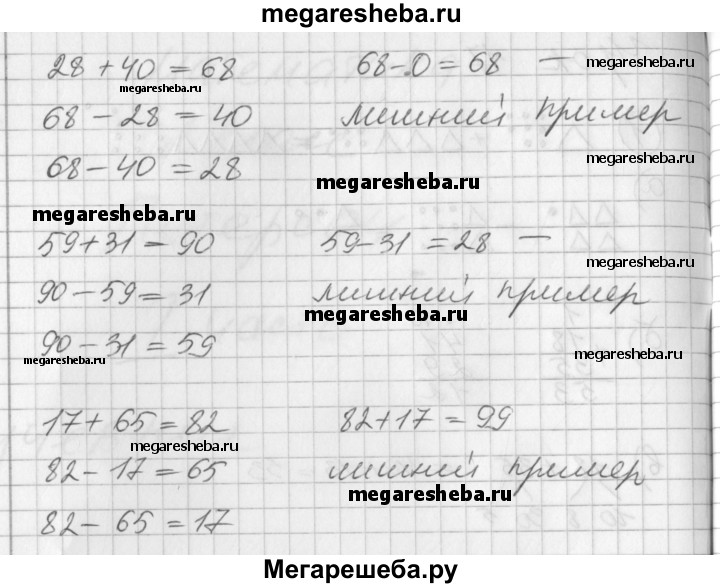 megaresheba.ru
28 + 40 = 68 68 - 0 = 68 —
megaresheba.ru
megaresheba.ru
68 - 28 = 40 лишний пример
68 - 40 = 28
megaresheba.ru
megaresheba.ru
59 + 31 = 90 59 - 31 = 28 —
megaresheba.ru
90 - 59 = 31 лишний пример
megaresheba.ru
90 - 31 = 59
megaresheba.ru
megaresheba.ru
17 + 65 = 82 82 + 17 = 99
megaresheba.ru
82 - 17 = 65 лишний пример
megaresheba.ru
82 - 65 = 17
Мегарешеба.ру